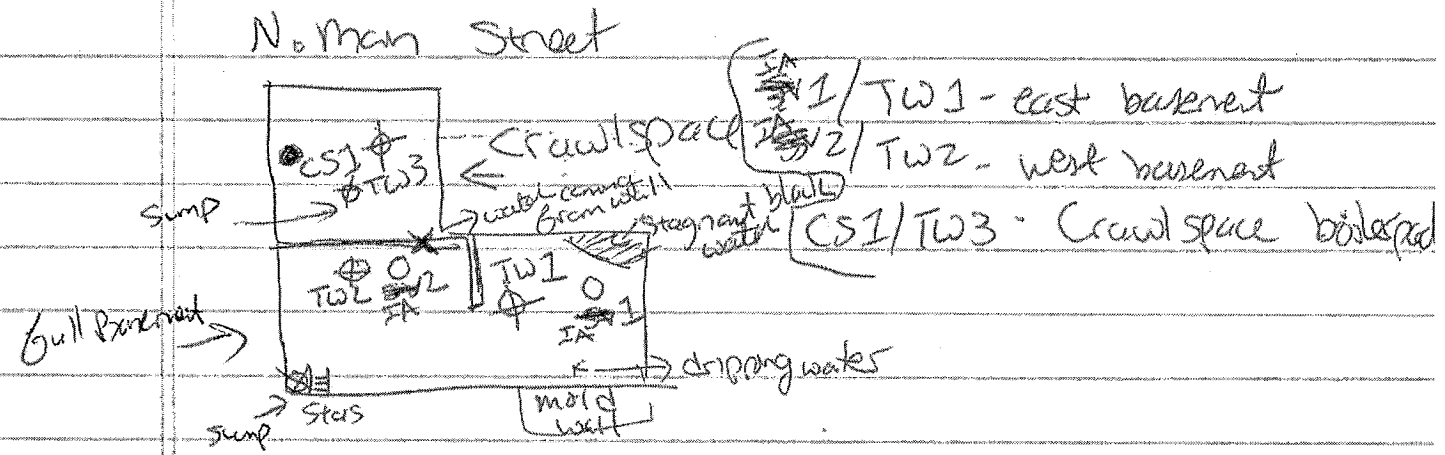 N. Main Street
IA1/TW1 - east basement
IA2/TW2 - west basement
CS1/TW3 - Crawlspace boilerpad
Crawlspace
CS1
TW3
sump
water coming
from wall
stagnant
water
TW2
IA2
TW1
IA1
full Basement
dripping water
sump
Stairs
mold
wall